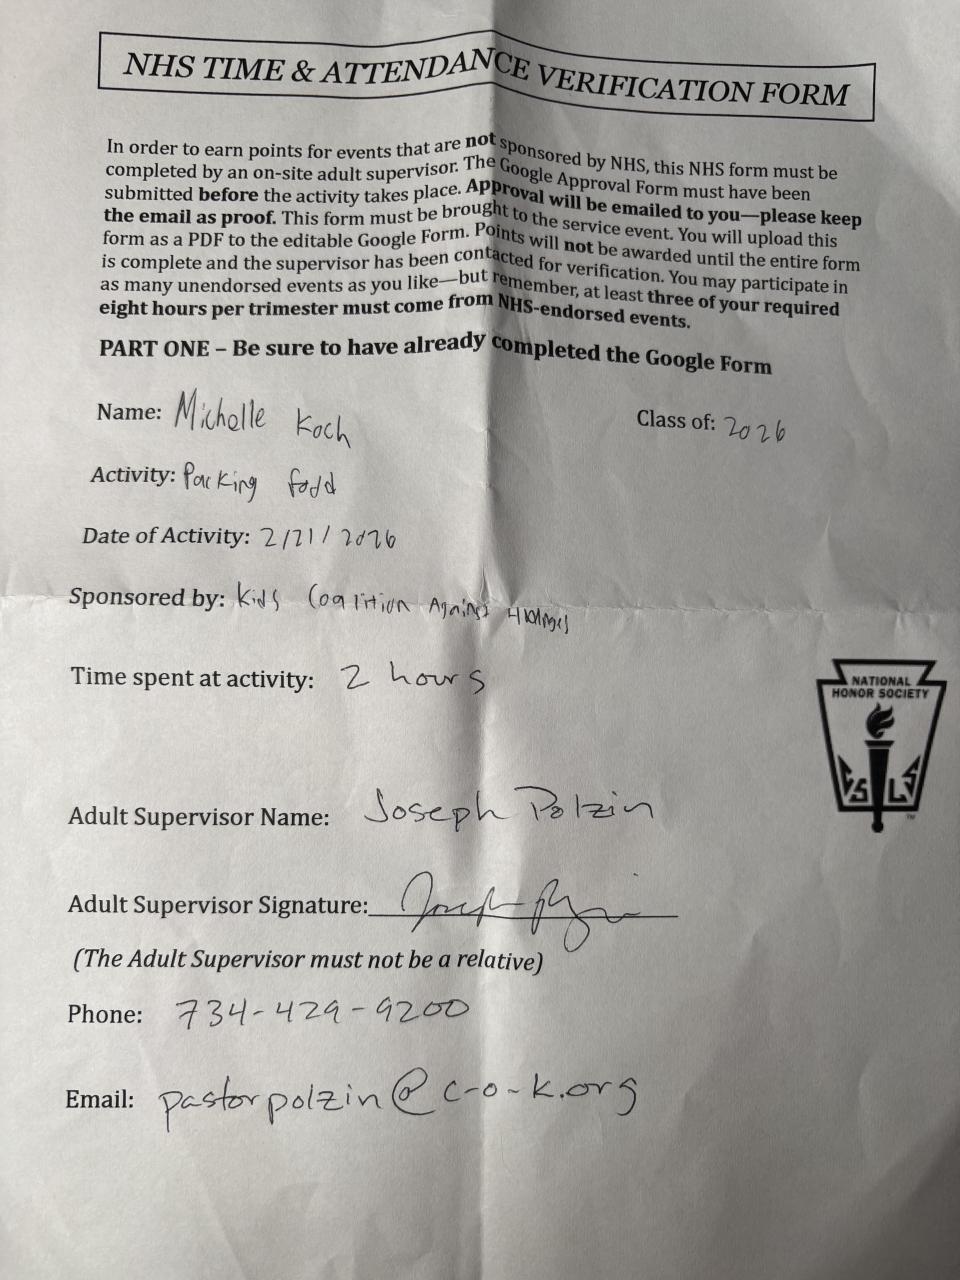 NHS TIME & ATTENDANCE VERIFICATION FORM
In order to earn points for events that are not sponsored by NHS, this NHS form must be
completed by an on-site adult supervisor. The Google Approval Form must have been
submitted before the activity takes place. Approval will be emailed to you—please keep
the email as proof. This form must be brought to the service event. You will upload this
form as a PDF to the editable Google Form. Points will not be awarded until the entire form
is complete and the supervisor has been contacted for verification. You may participate in
as many unendorsed events as you like—but remember, at least three of your required
eight hours per trimester must come from NHS-endorsed events.
PART ONE – Be sure to have already completed the Google Form
Name: Michelle Koch
Class of: 2026
Activity: Packing food
Date of Activity: 2/21/2026
Sponsored by: Kids Coalition Against
Time spent at activity: 2 hours
NATIONAL
HONOR SOCIETY
C S L S
TM
Adult Supervisor Name: Joseph Polzin
Adult Supervisor Signature: Joseph Polzin
(The Adult Supervisor must not be a relative)
Phone: 734-429-9200
Email: pastorpolzin@c-o-k.org